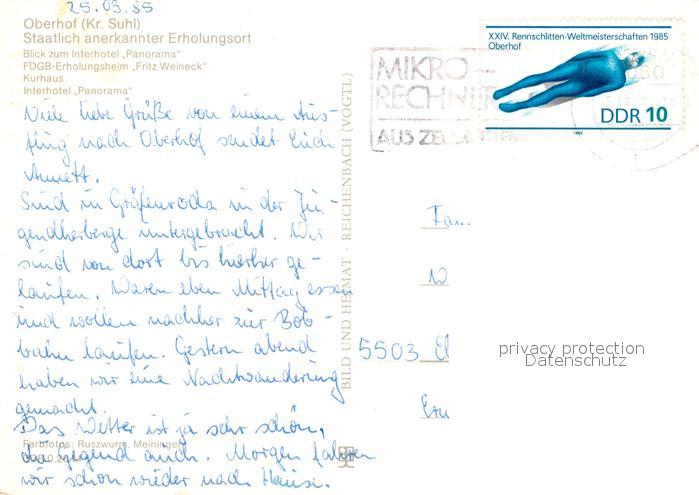 25.05.85
Oberhof (Kr. Suhl)
Staatlich anerkannter Erholungsort
Blick zum Interhotel „Panorama“
FDGB-Erholungsheim „Fritz Weineck“
Kurhaus
Interhotel „Panorama“
Viele liebe Grüße von einem Aus-
flug nach Oberhof sendet Euch
Annett.
Sind in Gräfenroda in der Ju-
gendherberge untergebracht. Wir
sind von dort bis hierher ge-
laufen. Waren eben Mittag essen
und wollen nachher zur Bob-
bahn laufen. Gestern abend
haben wir eine Nachtwanderung
gemacht.
Das Wetter ist ja sehr schön,
die Gegend auch. Morgen fahren
wir schon wieder nach Hause.
Farbfotos: Ruszwurm, Meiningen
BILD UND HEIMAT · REICHENBACH (VOGTL)
MIKRO-
RECHNER
AUS ZELLA
XXIV. Rennschlitten-Weltmeisterschaften 1985
Oberhof
DDR 10
1985
Fam.
W
5503 El
privacy protection
Datenschutz